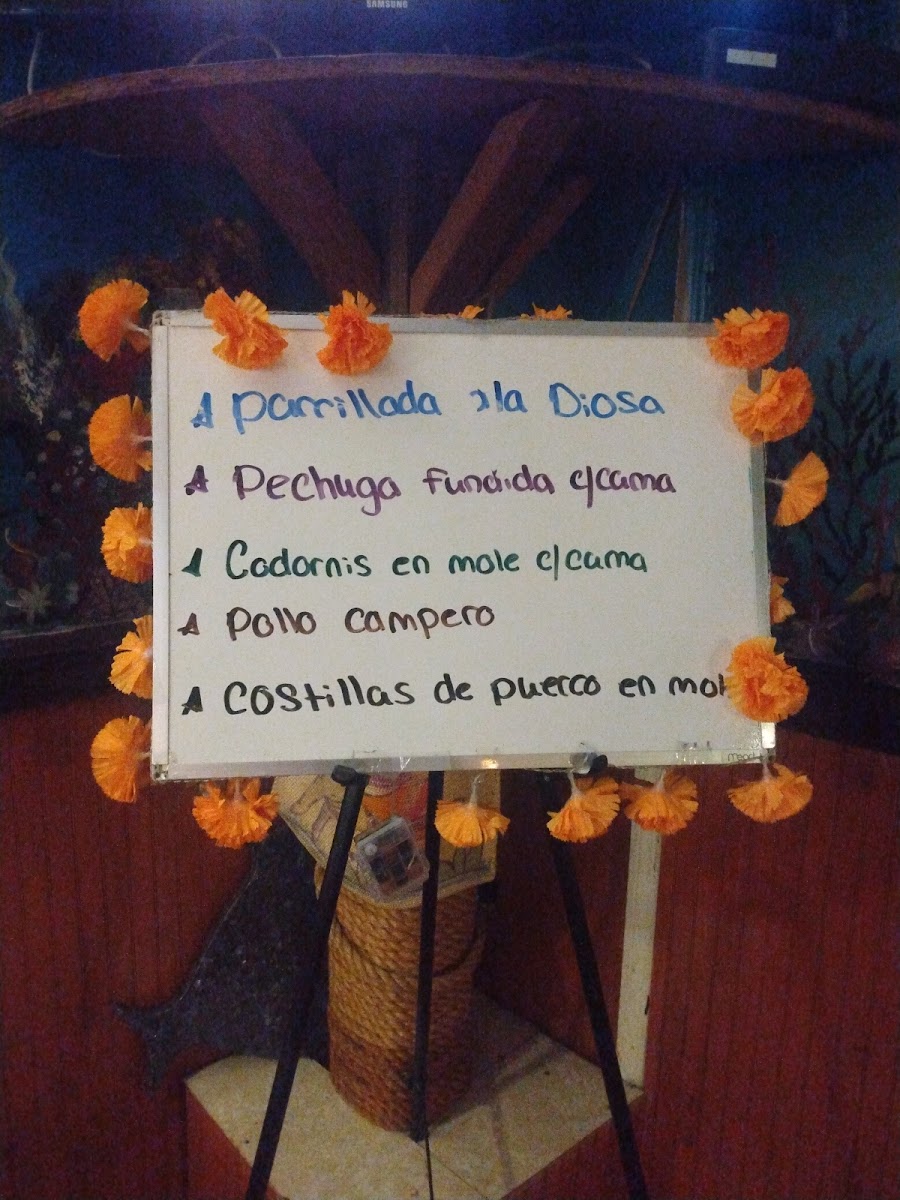 SAMSUNG
Parrillada a la Diosa
Pechuga fundida c/cama
Codornis en mole c/cama
Pollo campero
Costillas de puerco en mol